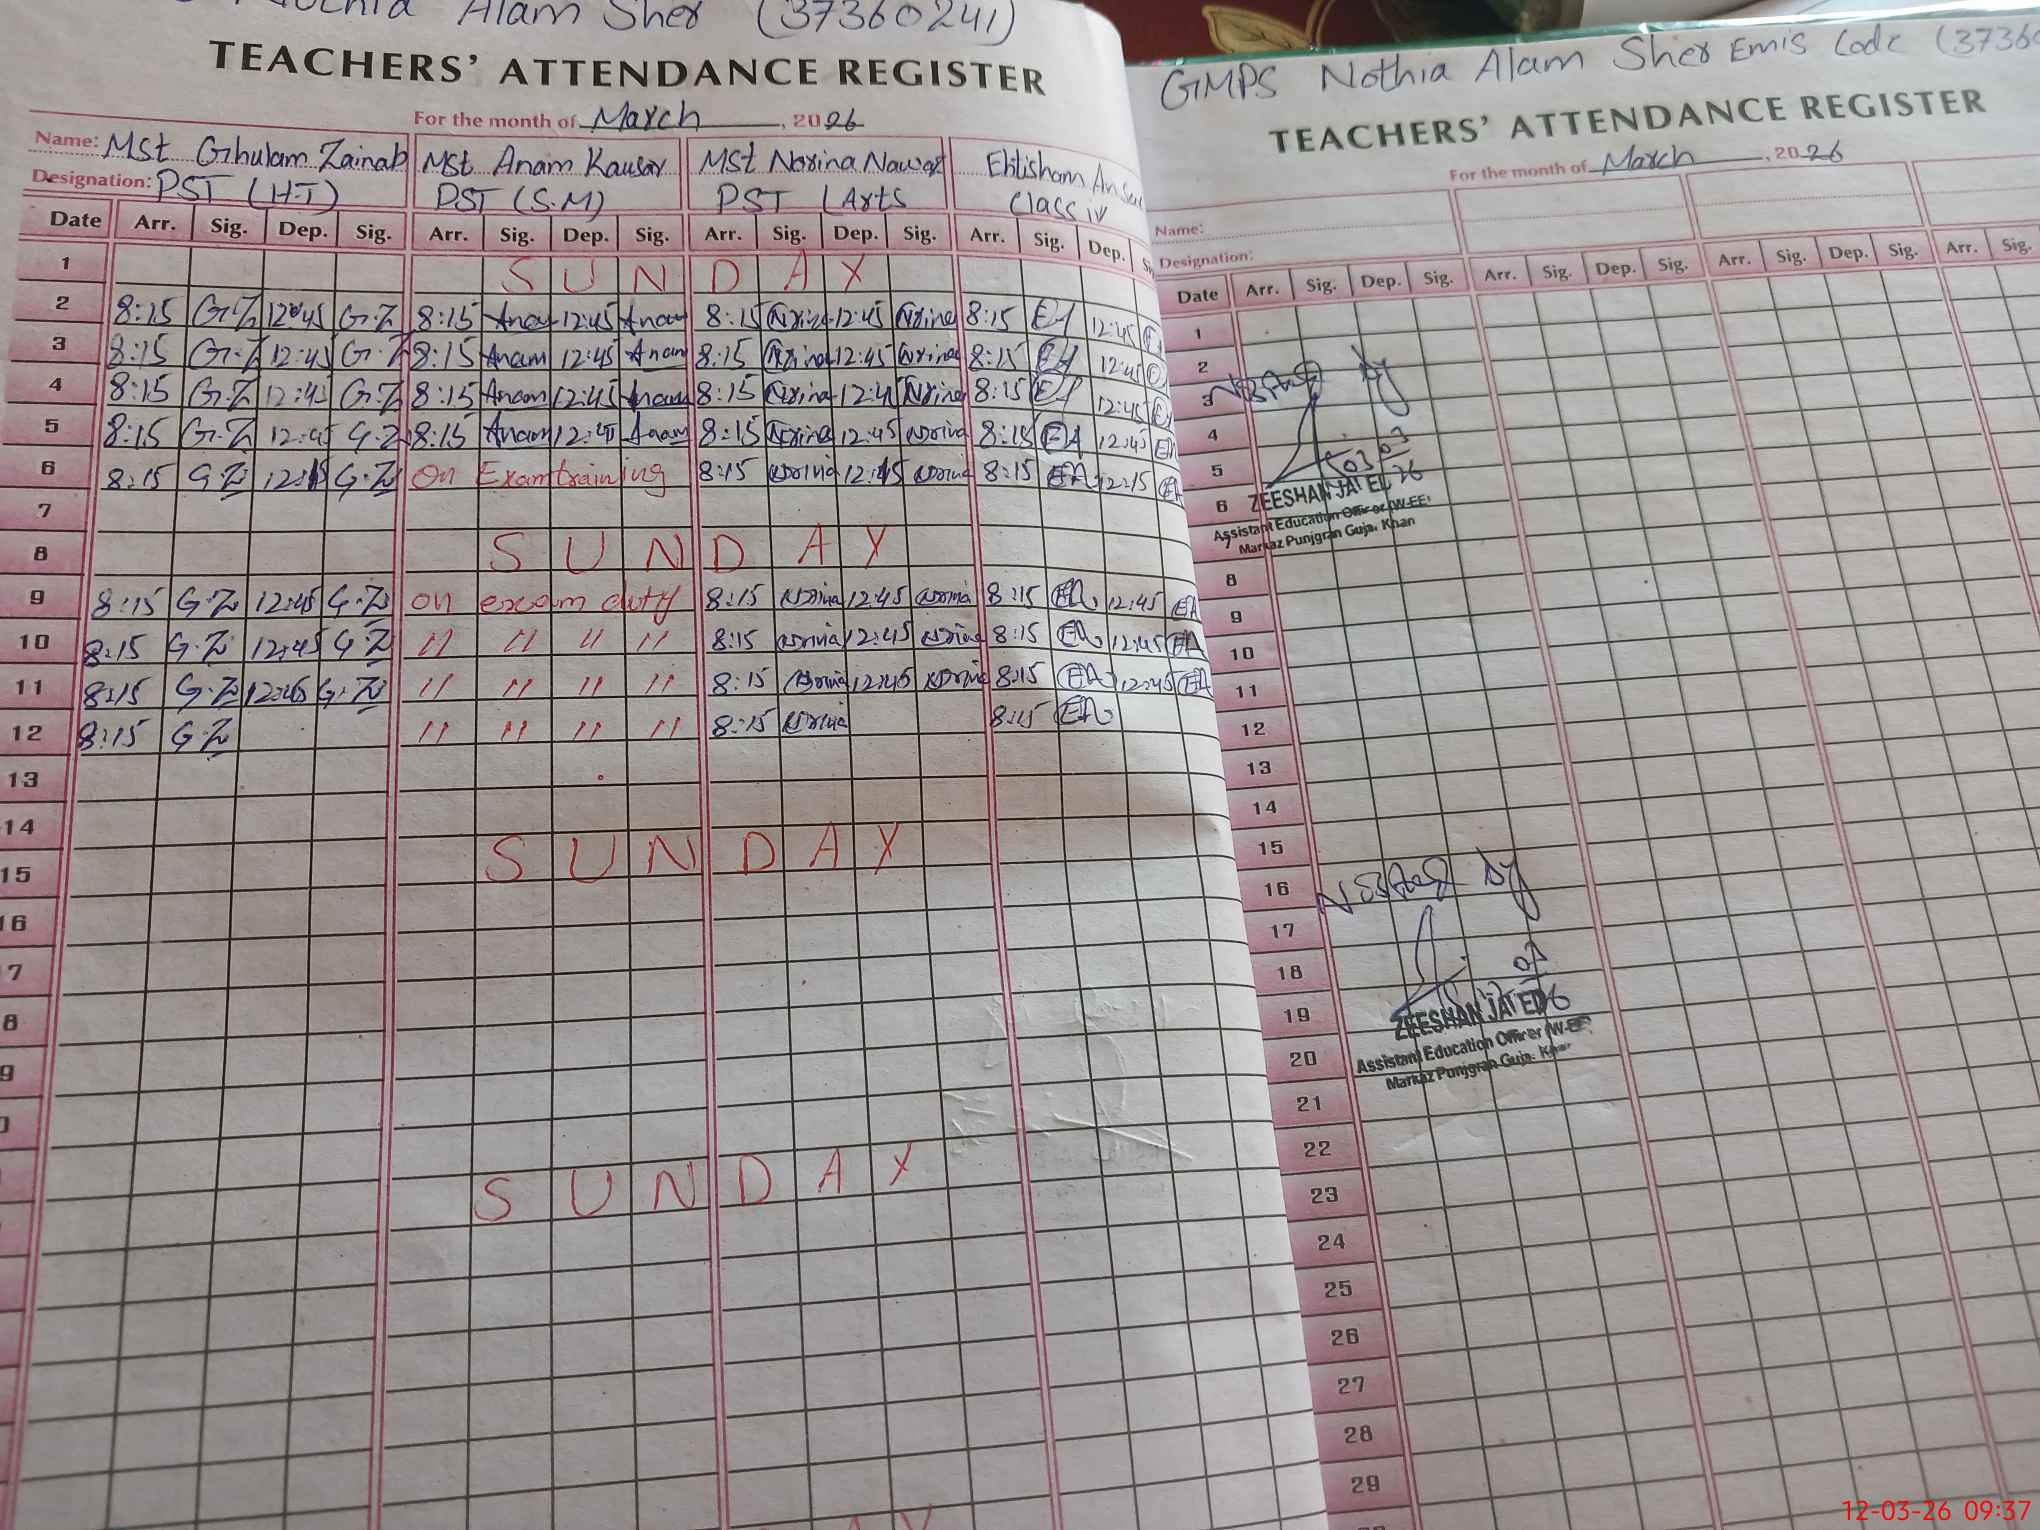 Nothia Alam Sher (37360241)
TEACHERS' ATTENDANCE REGISTER
For the month of March, 2026
Name: Mst Ghulam Zainab Mst Anam Kausar Mst Norina Nawaz Ehtisham
Designation: PST (H.T) PST (S.M) PST (Arts Class iv
Date Arr. Sig. Dep. Sig. Arr. Sig. Dep. Sig. Arr. Sig. Dep. Sig. Arr. Sig. Dep.
1 SUNDAY
2 8:15 G.Z 12:45 G.Z 8:15 Anam 12:45 Anam 8:15 Norina 12:45 Norina 8:15 EA 12:45
3 8:15 G.Z 12:45 G.Z 8:15 Anam 12:45 Anam 8:15 Norina 12:45 Norina 8:15 EA 12:45
4 8:15 G.Z 12:45 G.Z 8:15 Anam 12:45 Anam 8:15 Norina 12:45 Norina 8:15 EA 12:45 EA
5 8:15 G.Z 12:45 G.Z 8:15 Anam 12:45 Anam 8:15 Norina 12:45 Norina 8:15 EA 12:45 EA
6 8:15 G.Z G.Z On Exam training 8:15 Norina Norina 8:15 EA 12:15 EA
7
8 SUNDAY
9 8:15 G.Z 12:45 G.Z on exam duty 8:15 Norina 12:45 Norina 8:15 EA 12:45 EA
10 8:15 G.Z 12:45 G.Z " " " " 8:15 Norina 12:45 Norina 8:15 EA 12:45 EA
11 8:15 G.Z 12:45 G.Z " " " " 8:15 Norina 12:45 Norina 8:15 EA 12:45 EA
12 8:15 G.Z " " " " 8:15 Norina 8:15 EA
13
14
15 SUNDAY
16
7
8
9
SUNDAY
GMPS Nothia Alam Sher Emis Code (3736
TEACHERS' ATTENDANCE REGISTER
For the month of March, 2026
Name:
Designation:
Date Arr. Sig. Dep. Sig. Arr. Sig. Dep. Sig. Arr. Sig. Dep. Sig. Arr. Sig.
1
2
by
3
4
03
5
03
26
6 ZEESHAN JAVED
Assistant Education Officer (W-EE)
7 Markaz Punjgran Gujar Khan
8
9
10
11
12
13
14
15
16
by
17
18
03
19 ZEESHAN JAVED
20 Assistant Education Officer (W-EE)
Markaz Punjgran Gujar Khan
21
22
23
24
25
26
27
28
29
12-03-26 09:37